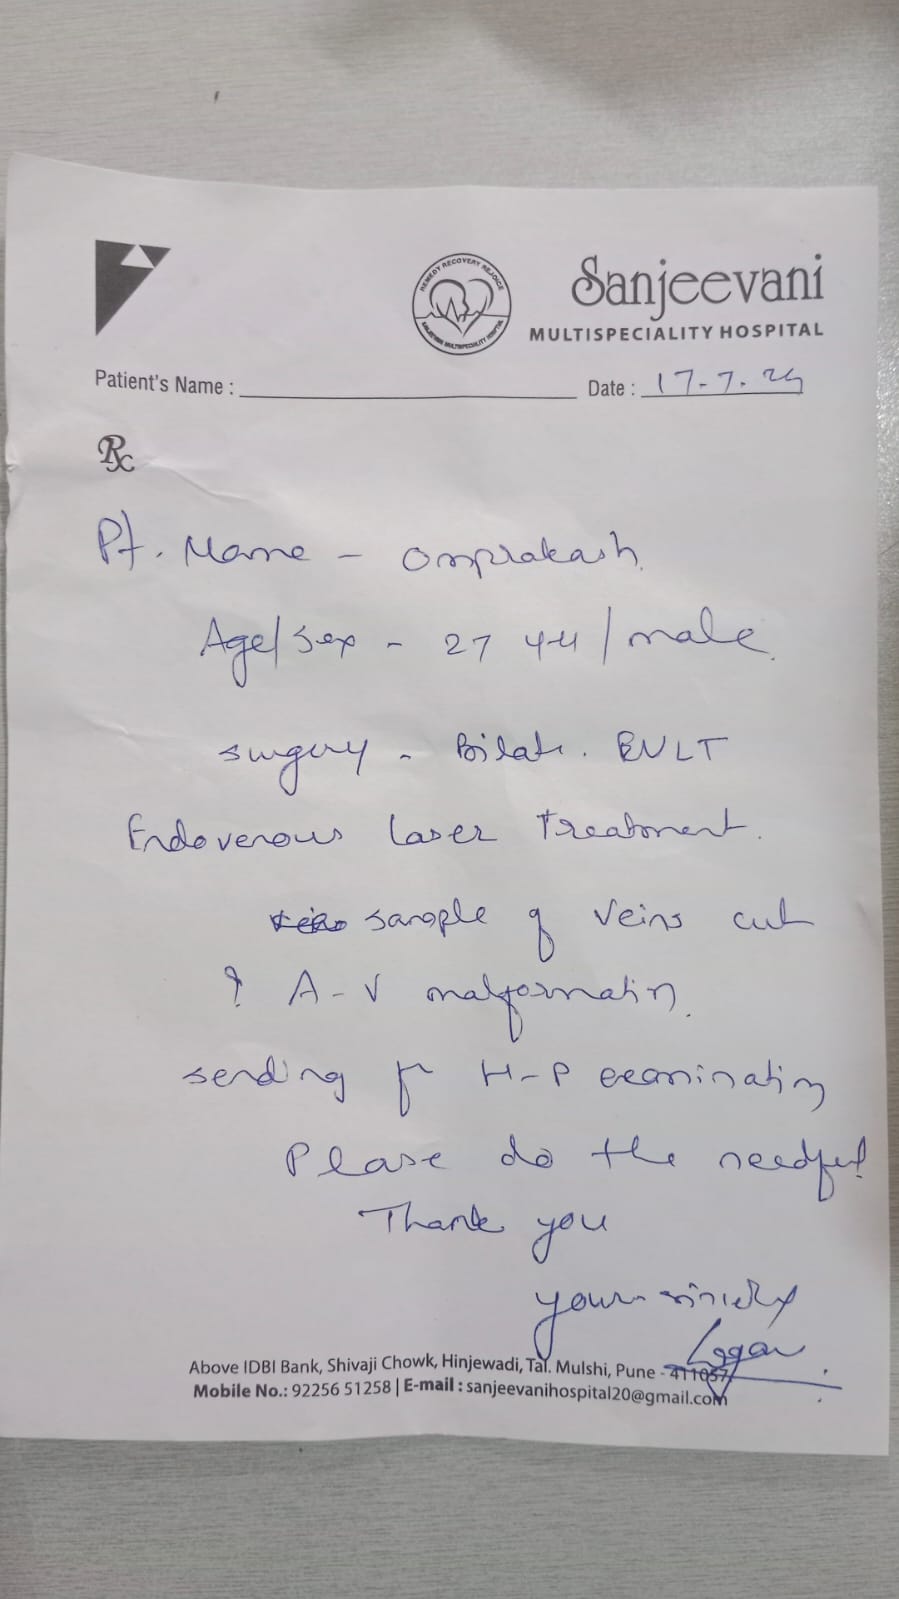 REMEDY RECOVERY REJOICE
Sanjeevani
MULTISPECIALITY HOSPITAL
Patient's Name :
Date : 17-7-24
Rx
Pt. Name - Omprakash.
Age/Sex - 27 yrs / male.
surgery - Bilat. EVLT
Endovenous laser Treatment.
sample of veins cut
? A-V malformation.
sending for H-P examination
Please do the needful
Thank you
yours sincerely
Above IDBI Bank, Shivaji Chowk, Hinjewadi, Tal. Mulshi, Pune - 411057
Mobile No.: 92256 51258 | E-mail : sanjeevanihospital20@gmail.com